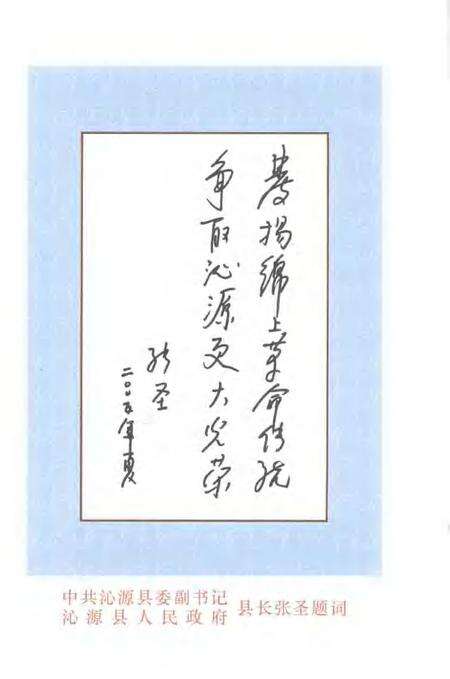 发扬绵上革命传统
争取沁源更大光荣
张圣
二〇〇五年夏
中共沁源县委副书记
沁源县人民政府 县长张圣题词